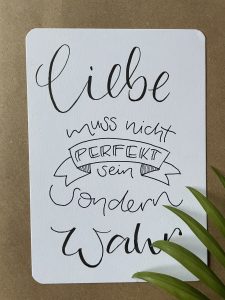 Liebe
muss nicht
PERFEKT
sein
sondern
Wahr